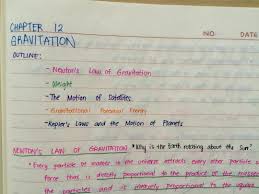 CHAPTER 12
GRAVITATION
NO.
DATE
OUTLINE:
- Newton's Law of Gravitation
- Weight
- The Motion of Satellites
- Gravitational Potential Energy
- Kepler's Laws and the Motion of Planets
NEWTON'S LAW OF GRAVITATION: "Why is the Earth rotating about the Sun"
"Every particle of matter in the universe attracts every other particle
force that is directly proportional to the product of the masses
the particles and is inversely proportional to the square